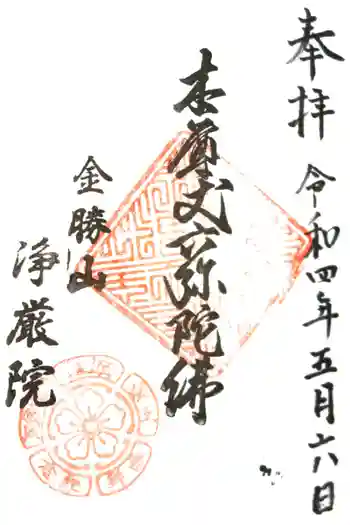 奉拝 令和四年五月六八日
本尊丈六弥陀佛
金勝山
浄厳院